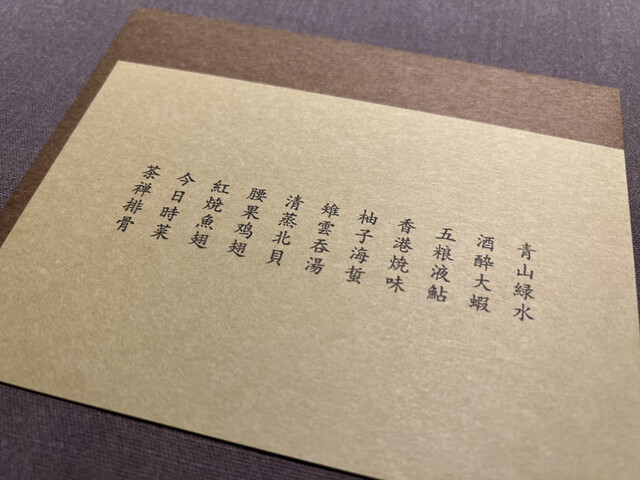 青山緑水
酒醉大蝦
五粮液鮎
香港焼味
柚子海蜇
雉雲呑湯
清蒸北貝
腰果鸡翅
紅焼魚翅
今日時菜
茶禅排骨